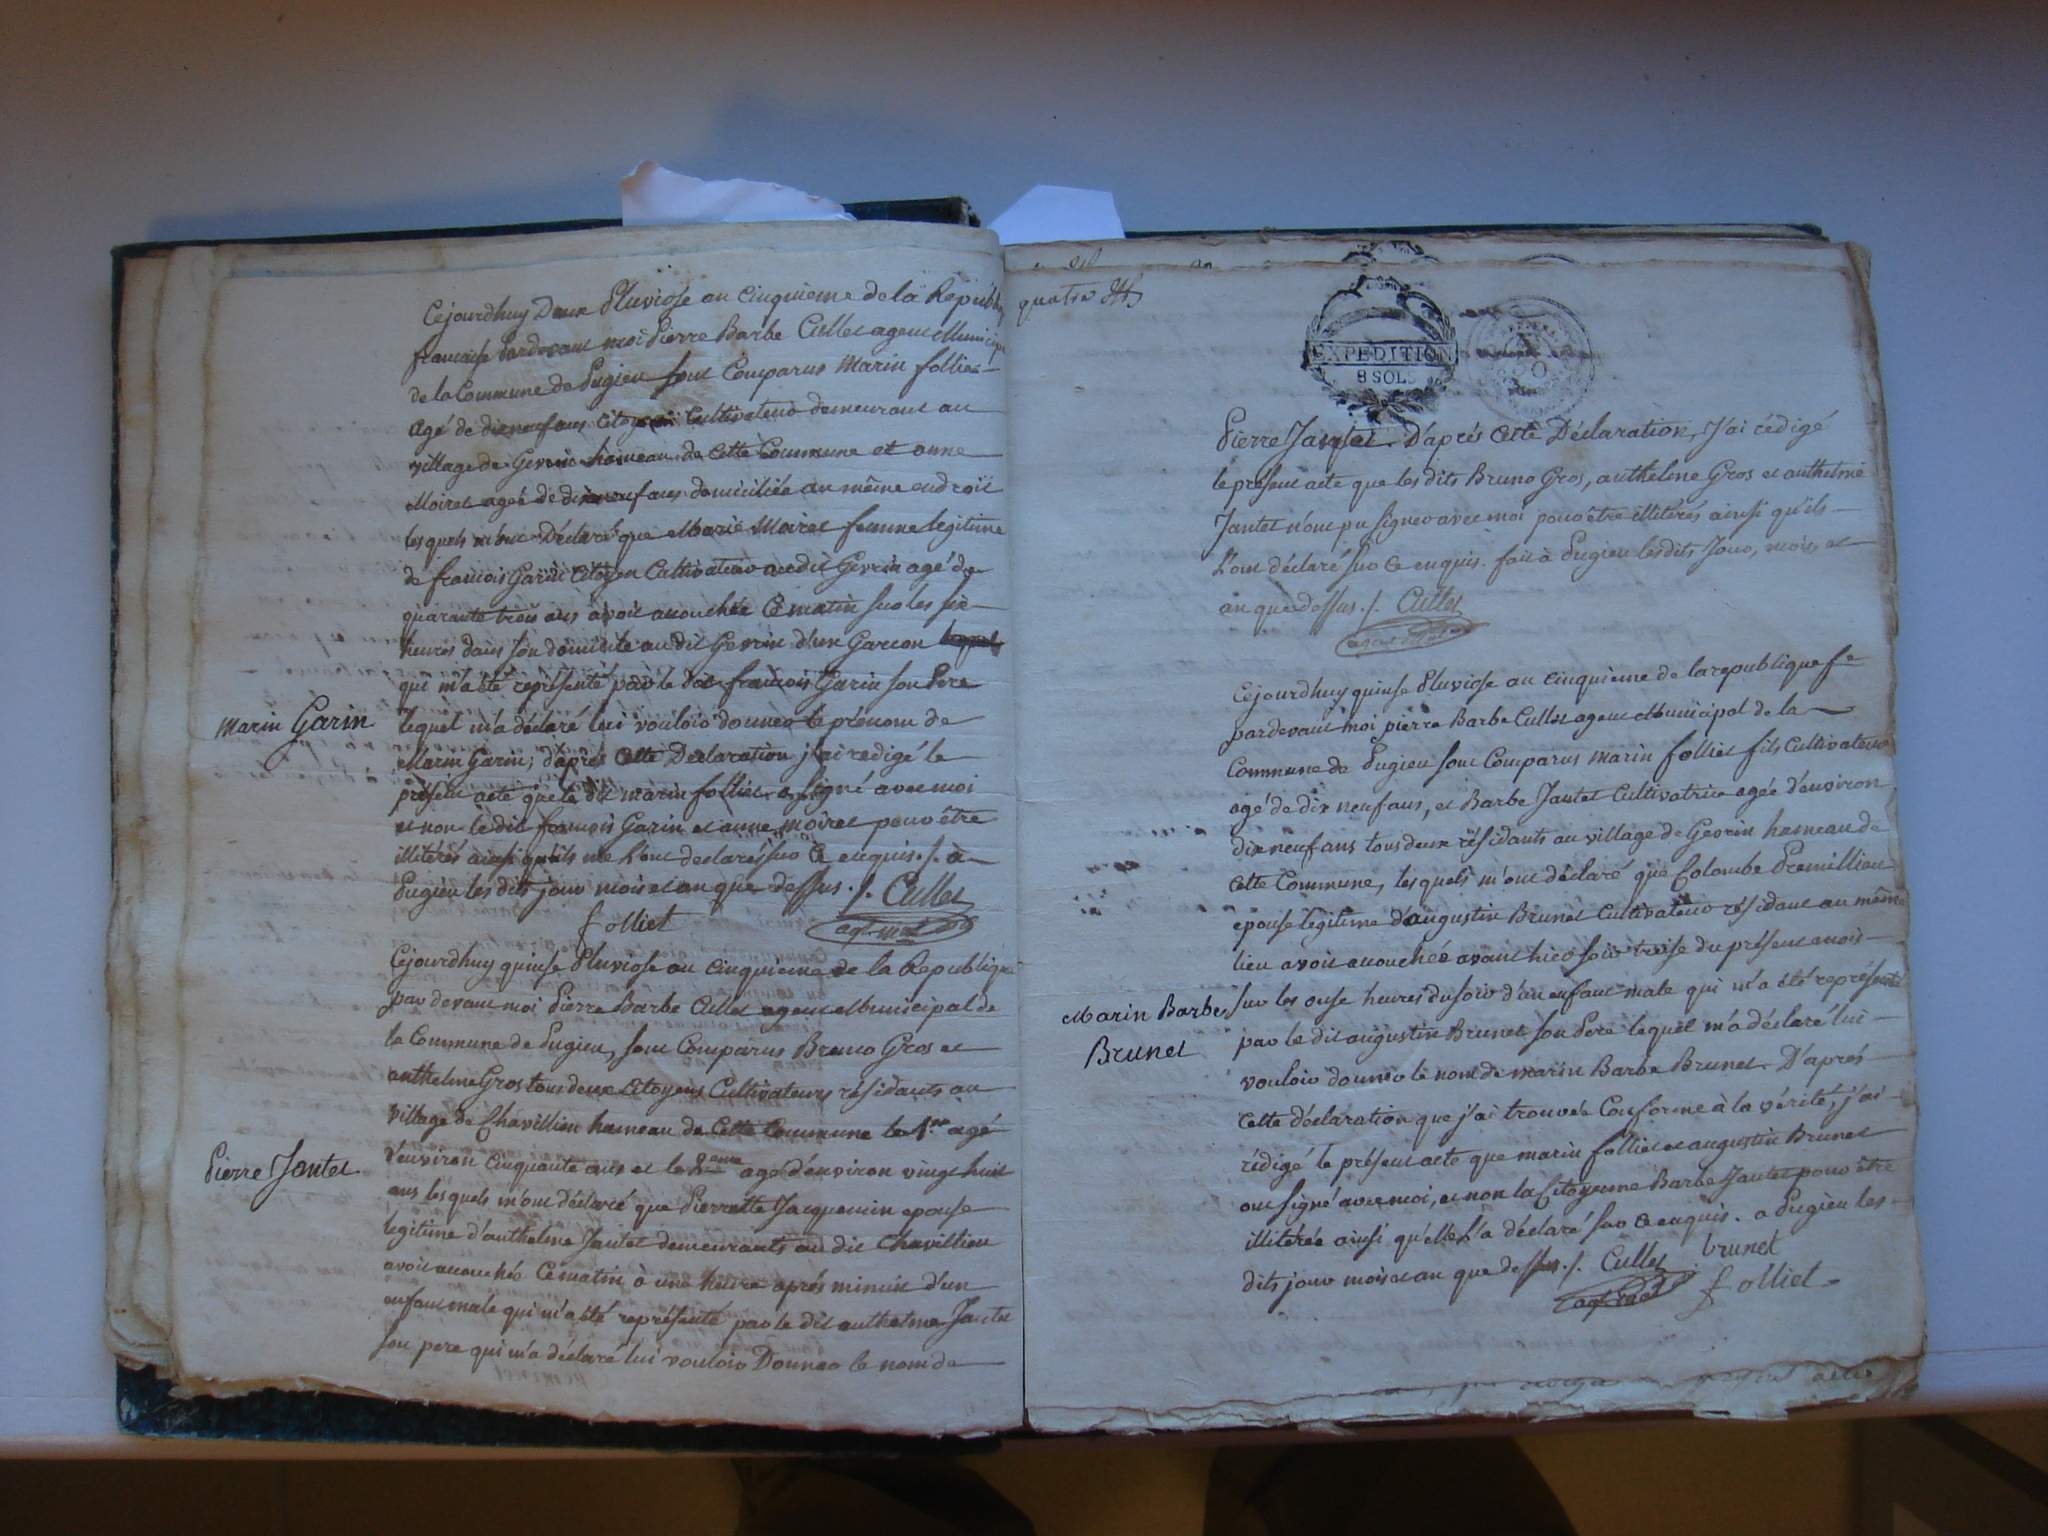 Cejourdhuy Deux Pluviose an cinquieme de la Republique
francaise Pardevant moi Pierre Barbe Cullet agent Municipal
de la Commune de Pugieu sont Comparus Marin folliet
Agé de dixneuf ans Citoyen Cultivateur demeurant au
village de Gevrin hameau de cette Commune et anne
Moiret ageé de dixneuf ans domiciliée au même endroit
les quels m'ont Déclaré que Marie Moiret femme legitime
de francois Garin Citoyen Cultivateur audit Gevrin agé de
quarante trois ans avoit accouchée Ce matin sur les six
heures dans son domicile au dit Gevrin d'un Garcon
qui m'a été représenté par le dit francois Garin son Pere
marin Garin
lequel m'a déclaré lui vouloir donner le prénom de
Marin Garin; d'après cette Déclaration j'ai redigé le
présent acte que le dit marin folliet a signé avec moi
et non le dit francois Garin et anne moiret pour être
illitérés ainsi qu'ils me l'ont declarés sur ce enquis ./. à
Pugieu les dits jour mois et an que dessus ./. Cullet
folliet agt. mpal
Cejourdhuy quinse Pluviose an cinquieme de la Republique
par devant moi Pierre Barbe Cullet agent Municipal de
la Commune de Pugieu, sont Comparus Bruno Gros et
anthelme Gros tous deux citoyens Cultivateurs résidants au
village de Chavillieu hameau de Cette Commune le 1er agé
Pierre Jantet
d'environ cinquante ans et le 2eme agé d'environ vingt huit
ans les quels m'ont déclaré que Pierrette Jacquemin epouse
legitime d'anthelme Jantet demeurants au dit Chavillieu
avoit accouchée Ce matin à une heure aprés minuit d'un
enfant male qui m'a été représenté par le dit anthelme Jantet
son pere qui m'a déclaré lui vouloir Donner le nom de
quatre
EXPEDITION
8 SOLS
Pierre Jantet. D'aprés cette Déclaration, J'ai rédigé
le présent acte que les dits Bruno Gros, anthelme Gros et anthelme
Jantet n'ont pu signer avec moi pour être illitérés ainsi qu'ils
l'ont déclaré sur ce enquis. fait à Pugieu les dits Jour, mois, et
an que dessus ./. Cullet
agent mpal
Cejourdhuy quinse Pluviose an cinquieme de la republique fe
pardevant moi pierre Barbe Cullet agent Municipal de la
Commune de Pugieu sont Comparus marin folliet fils Cultivateur
agé de dix neuf ans, et Barbe Jantet Cultivatrice agée d'environ
dix neuf ans tous deux résidants au village de Gevrin hameau de
cette Commune, les quels m'ont déclaré que Colombe Premillieu
epouse legitime d'augustin Brunet Cultivateur résidant au même
lieu avoit accouchée avant hier soir treise du présent mois
Marin Barbe
sur les onse heures du soir d'un enfant male qui m'a été représenté
Brunet
par le dit augustin Brunet son Pere lequel m'a déclaré lui
vouloir donner le nom de marin Barbe Brunet. D'aprés
cette déclaration que j'ai trouvée Conforme à la vérité, j'ai
rédigé le présent acte que marin folliet et augustin Brunet
ont signé avec moi, et non la Citoyenne Barbe Jantet pour être
illitérée ainsi qu'elle l'a déclaré sur ce enquis. a Pugieu les
dits jour mois et an que dessus ./. Cullet brunet
agt. mpal folliet